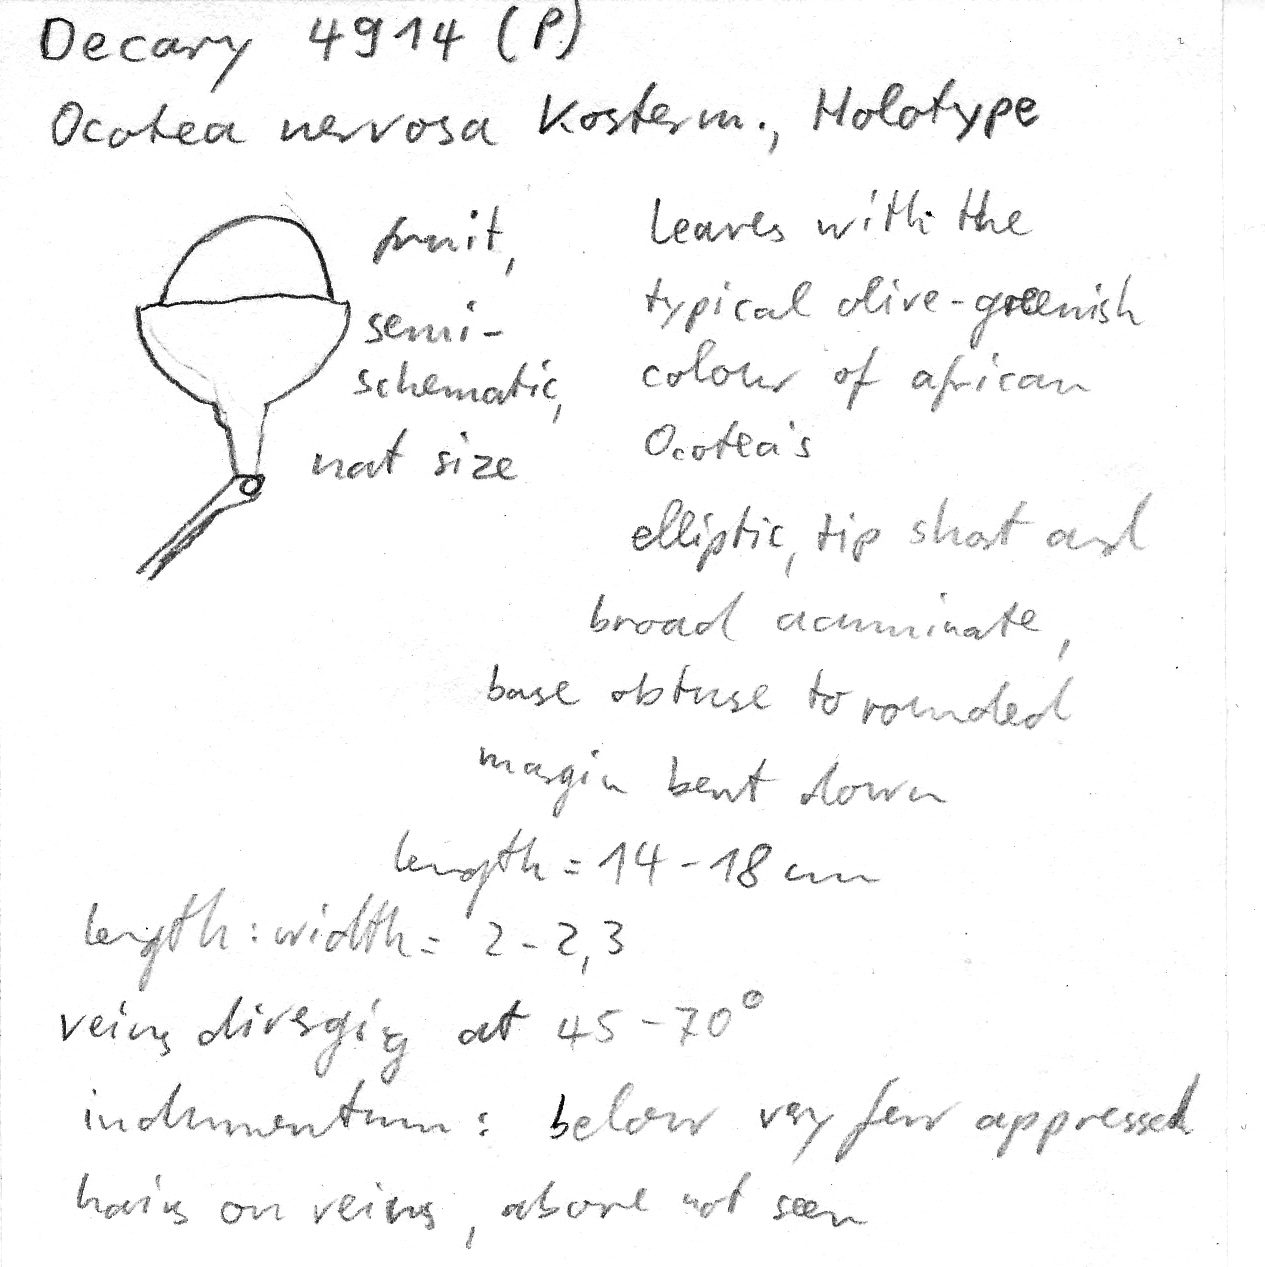 Decary 4914 (P)
Ocotea nervosa Kosterm., Holotype
fruit,
semi-
schematic,
nat size
Leaves with the
typical olive-greenish
colour of african
Ocotea's
elliptic, tip short and
broad acuminate,
base obtuse to rounded
margin bent down
length = 14-18 cm
length : width = 2-2,3
veins diverging at 45-70°
indumentum: below very few appressed
hairs on veins, above not seen